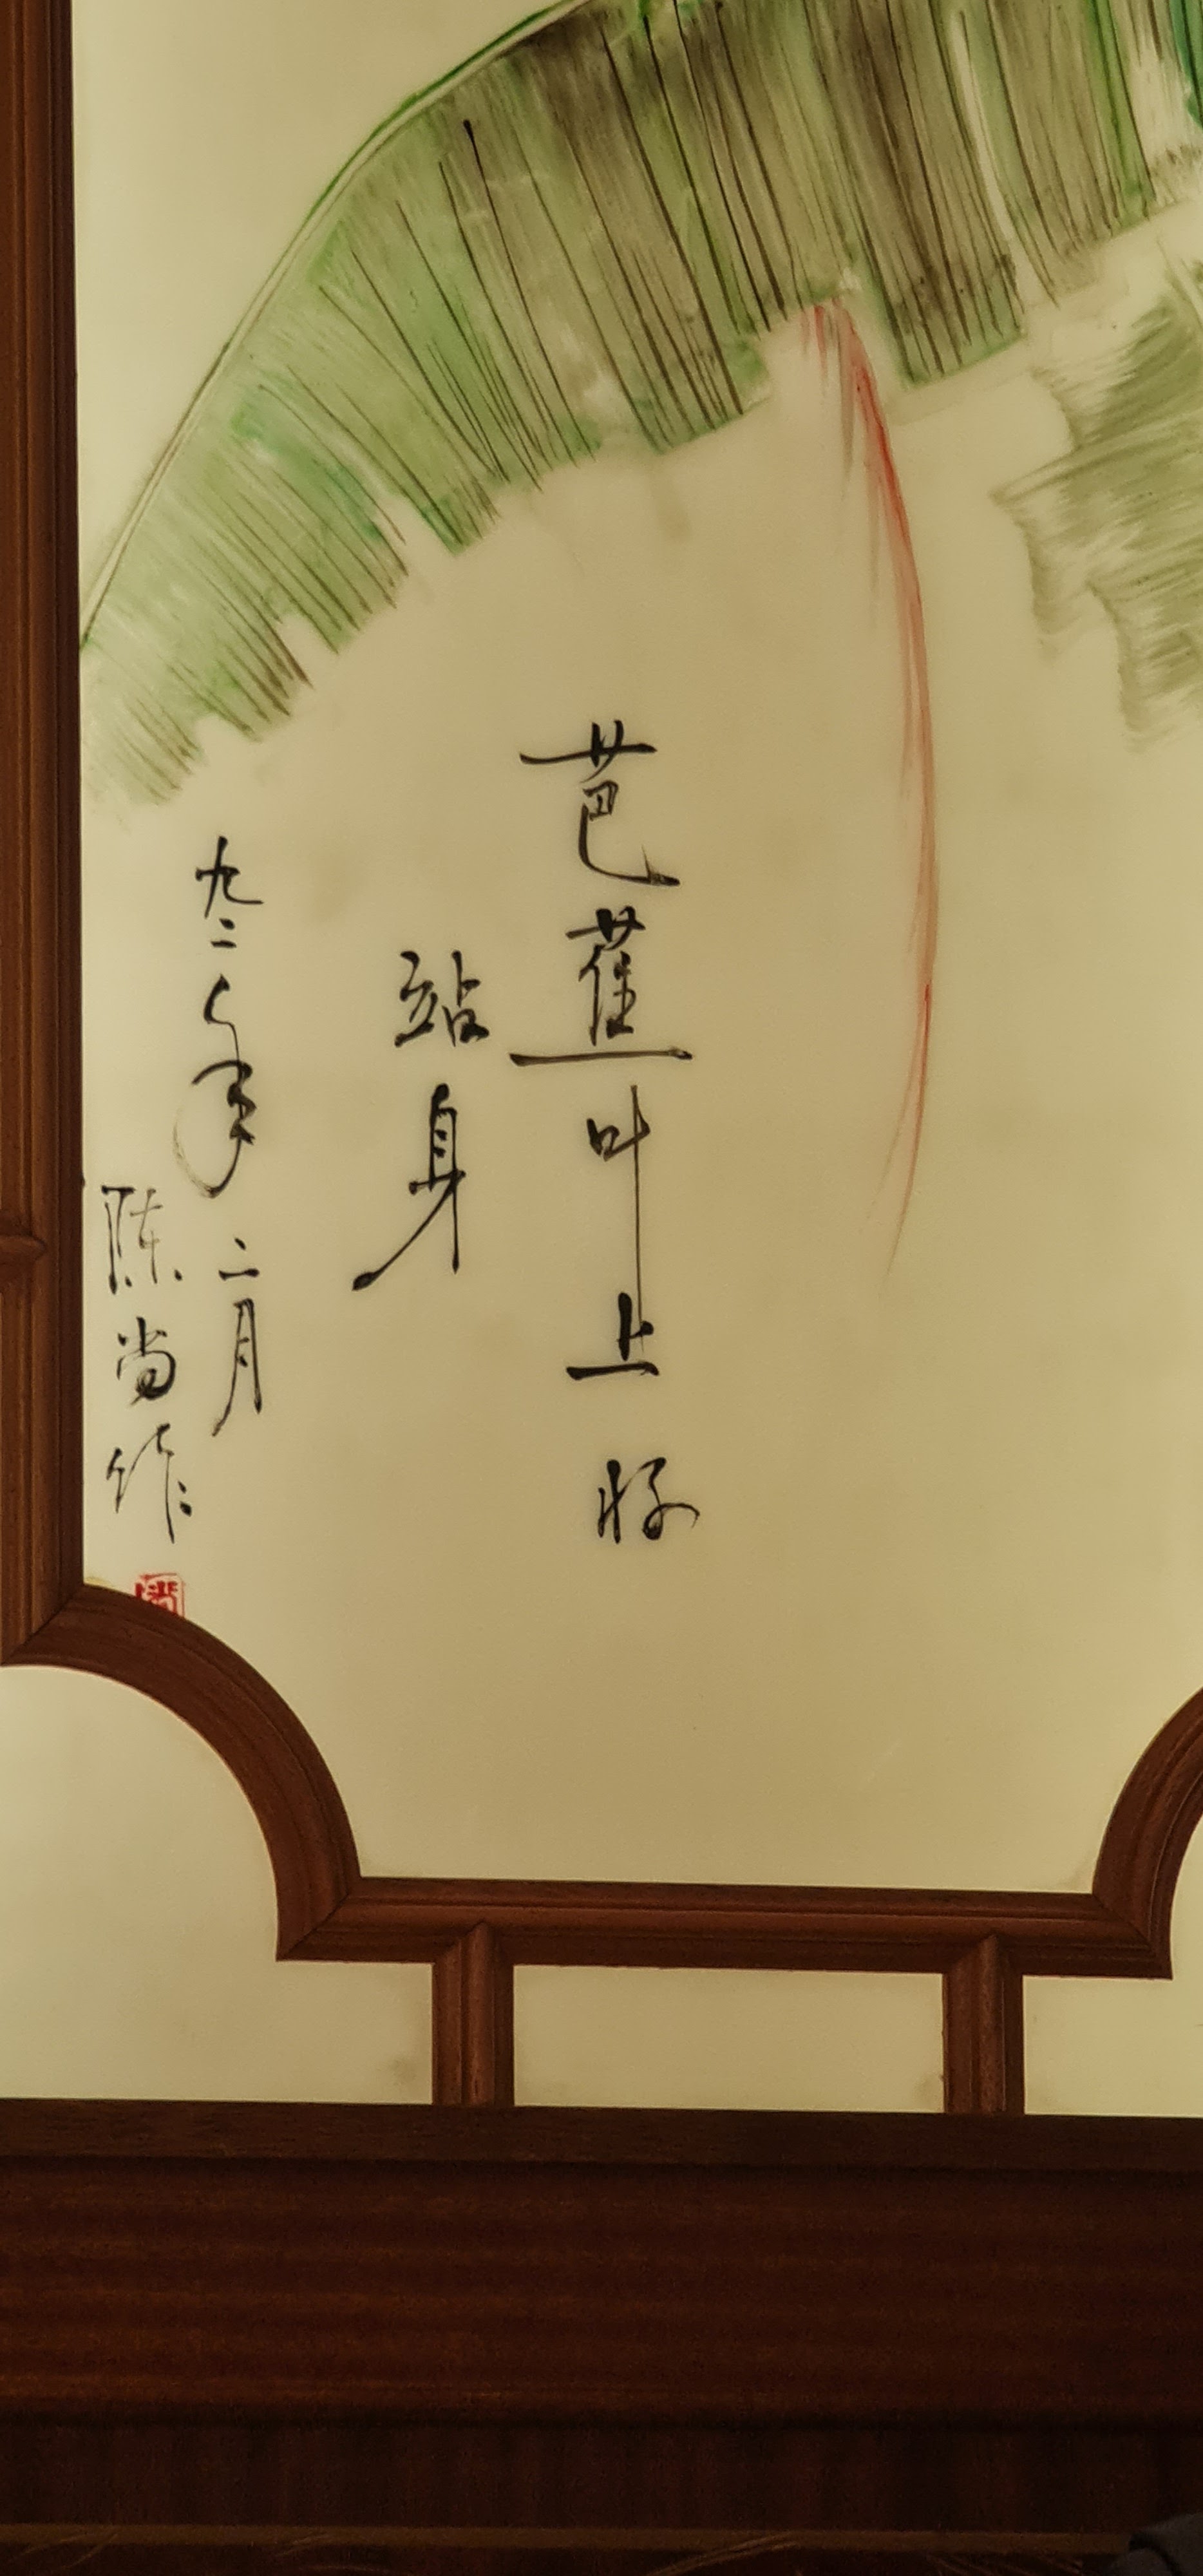 芭蕉叶上好
站身
九二年二月
陈尚作